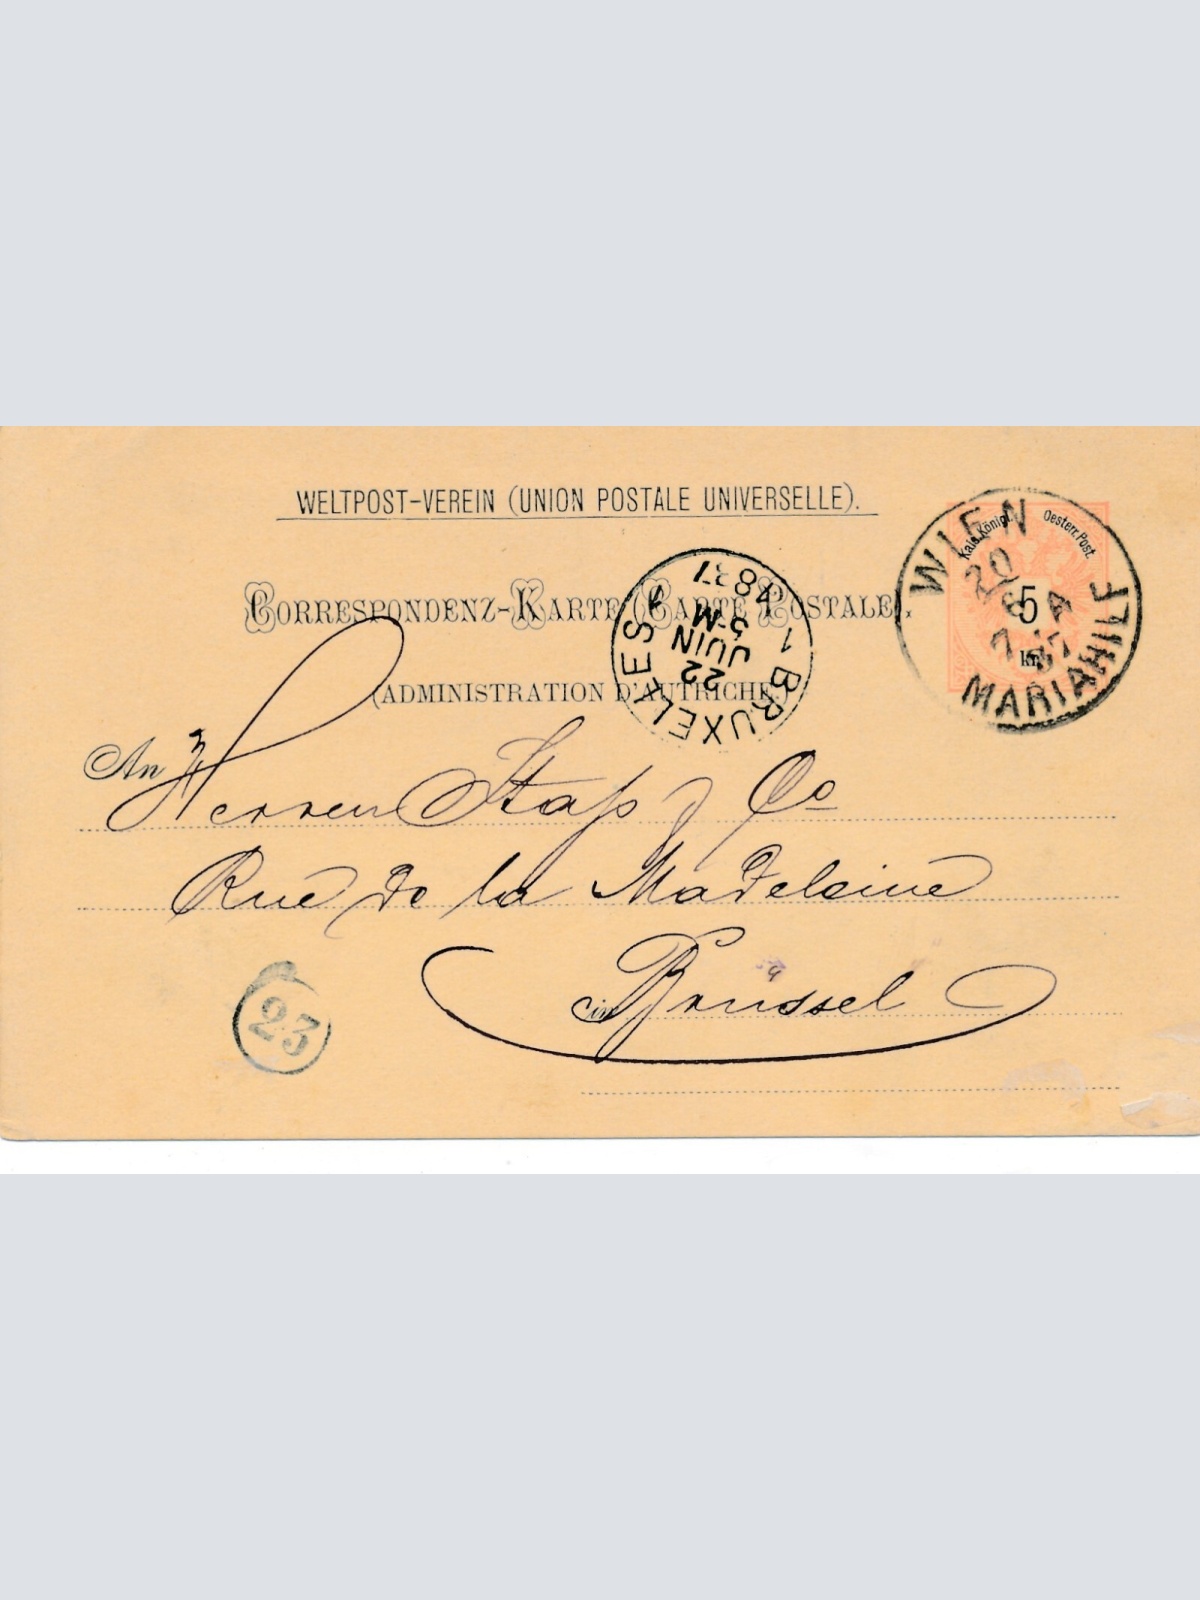 WELTPOST-VEREIN (UNION POSTALE UNIVERSELLE).
Kais. Königl. Oesterr. Post.
5
kr.
WIEN
20
MARIAHILF
CORRESPONDENZ-KARTE (CARTE POSTALE).
1 BRUXELLES 1
22
JUIN
5-M
(ADMINISTRATION D'AUTRICHE.)
An Herren & Co
Rue de la Madeleine
in Brüssel
23